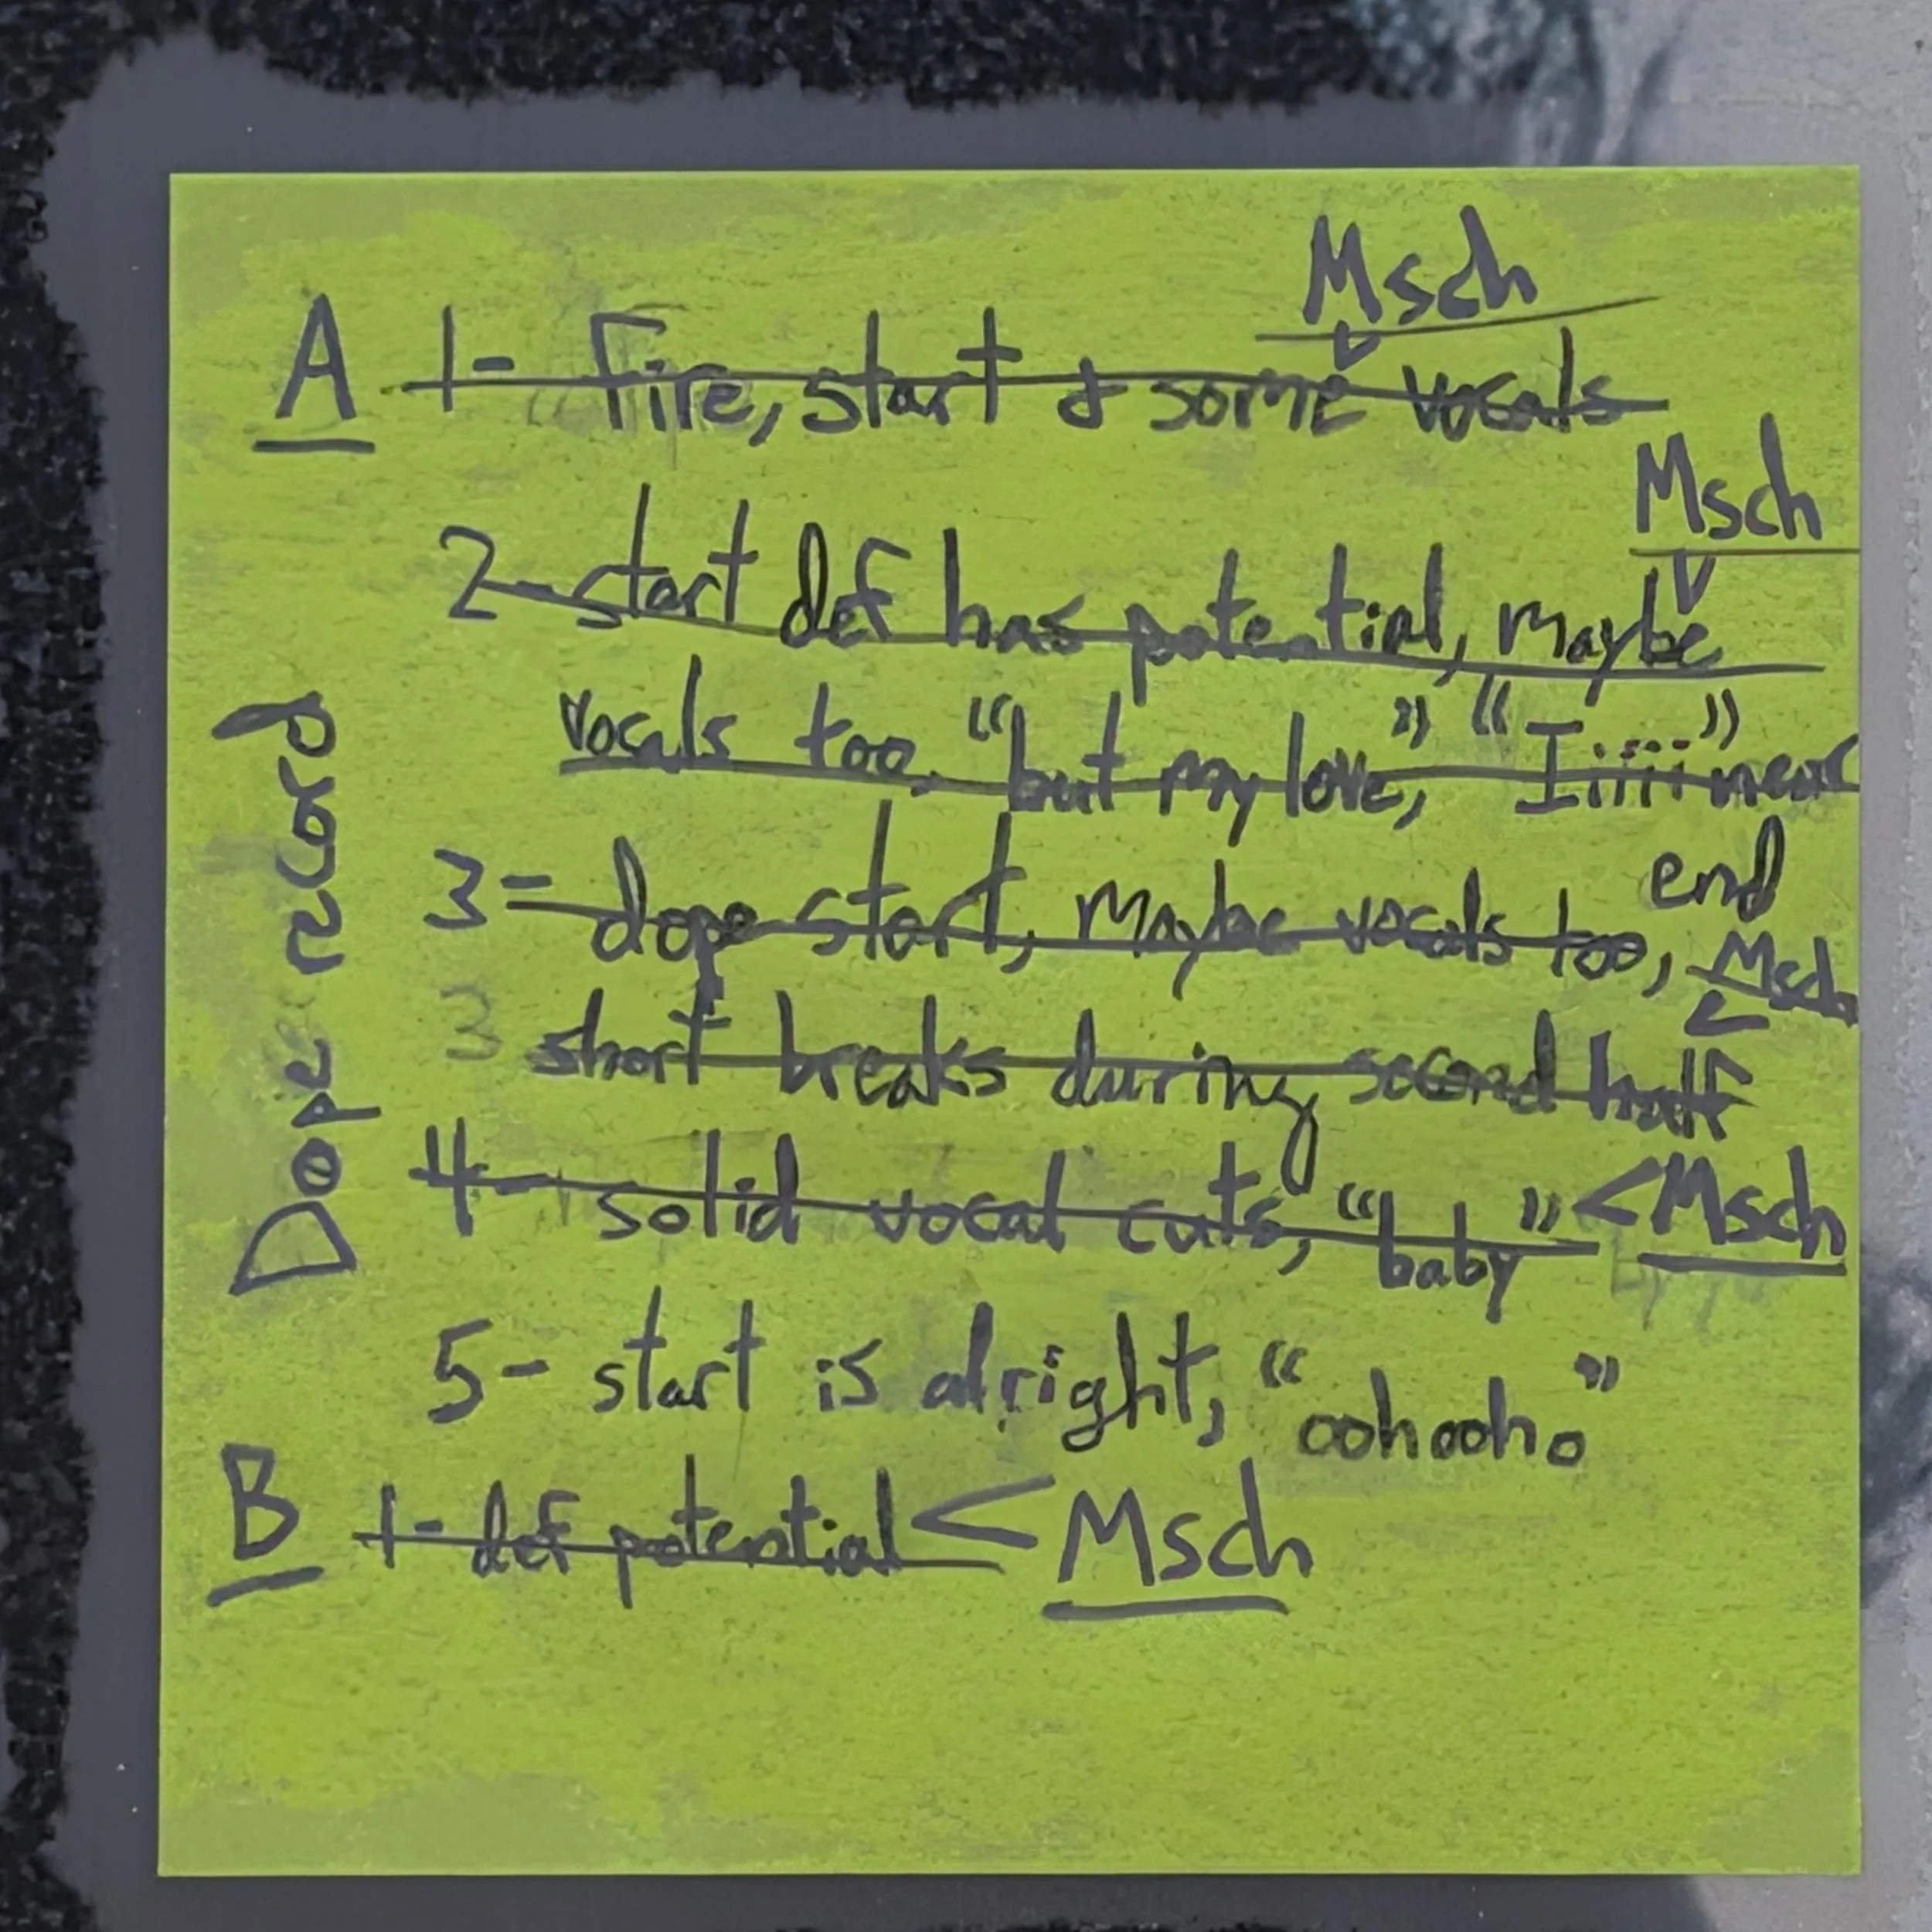 Msch
A 1- Fire, start & some vocals
Msch
2- start def has potential, maybe
vocals too, "but my love," "Iiiii" near
end
3- dope start, maybe vocals too, Msch
3 short breaks during second half
4- solid vocal cuts, "baby" < Msch
5- start is alright, "oohooho"
B 1- def potential < Msch
Dope record